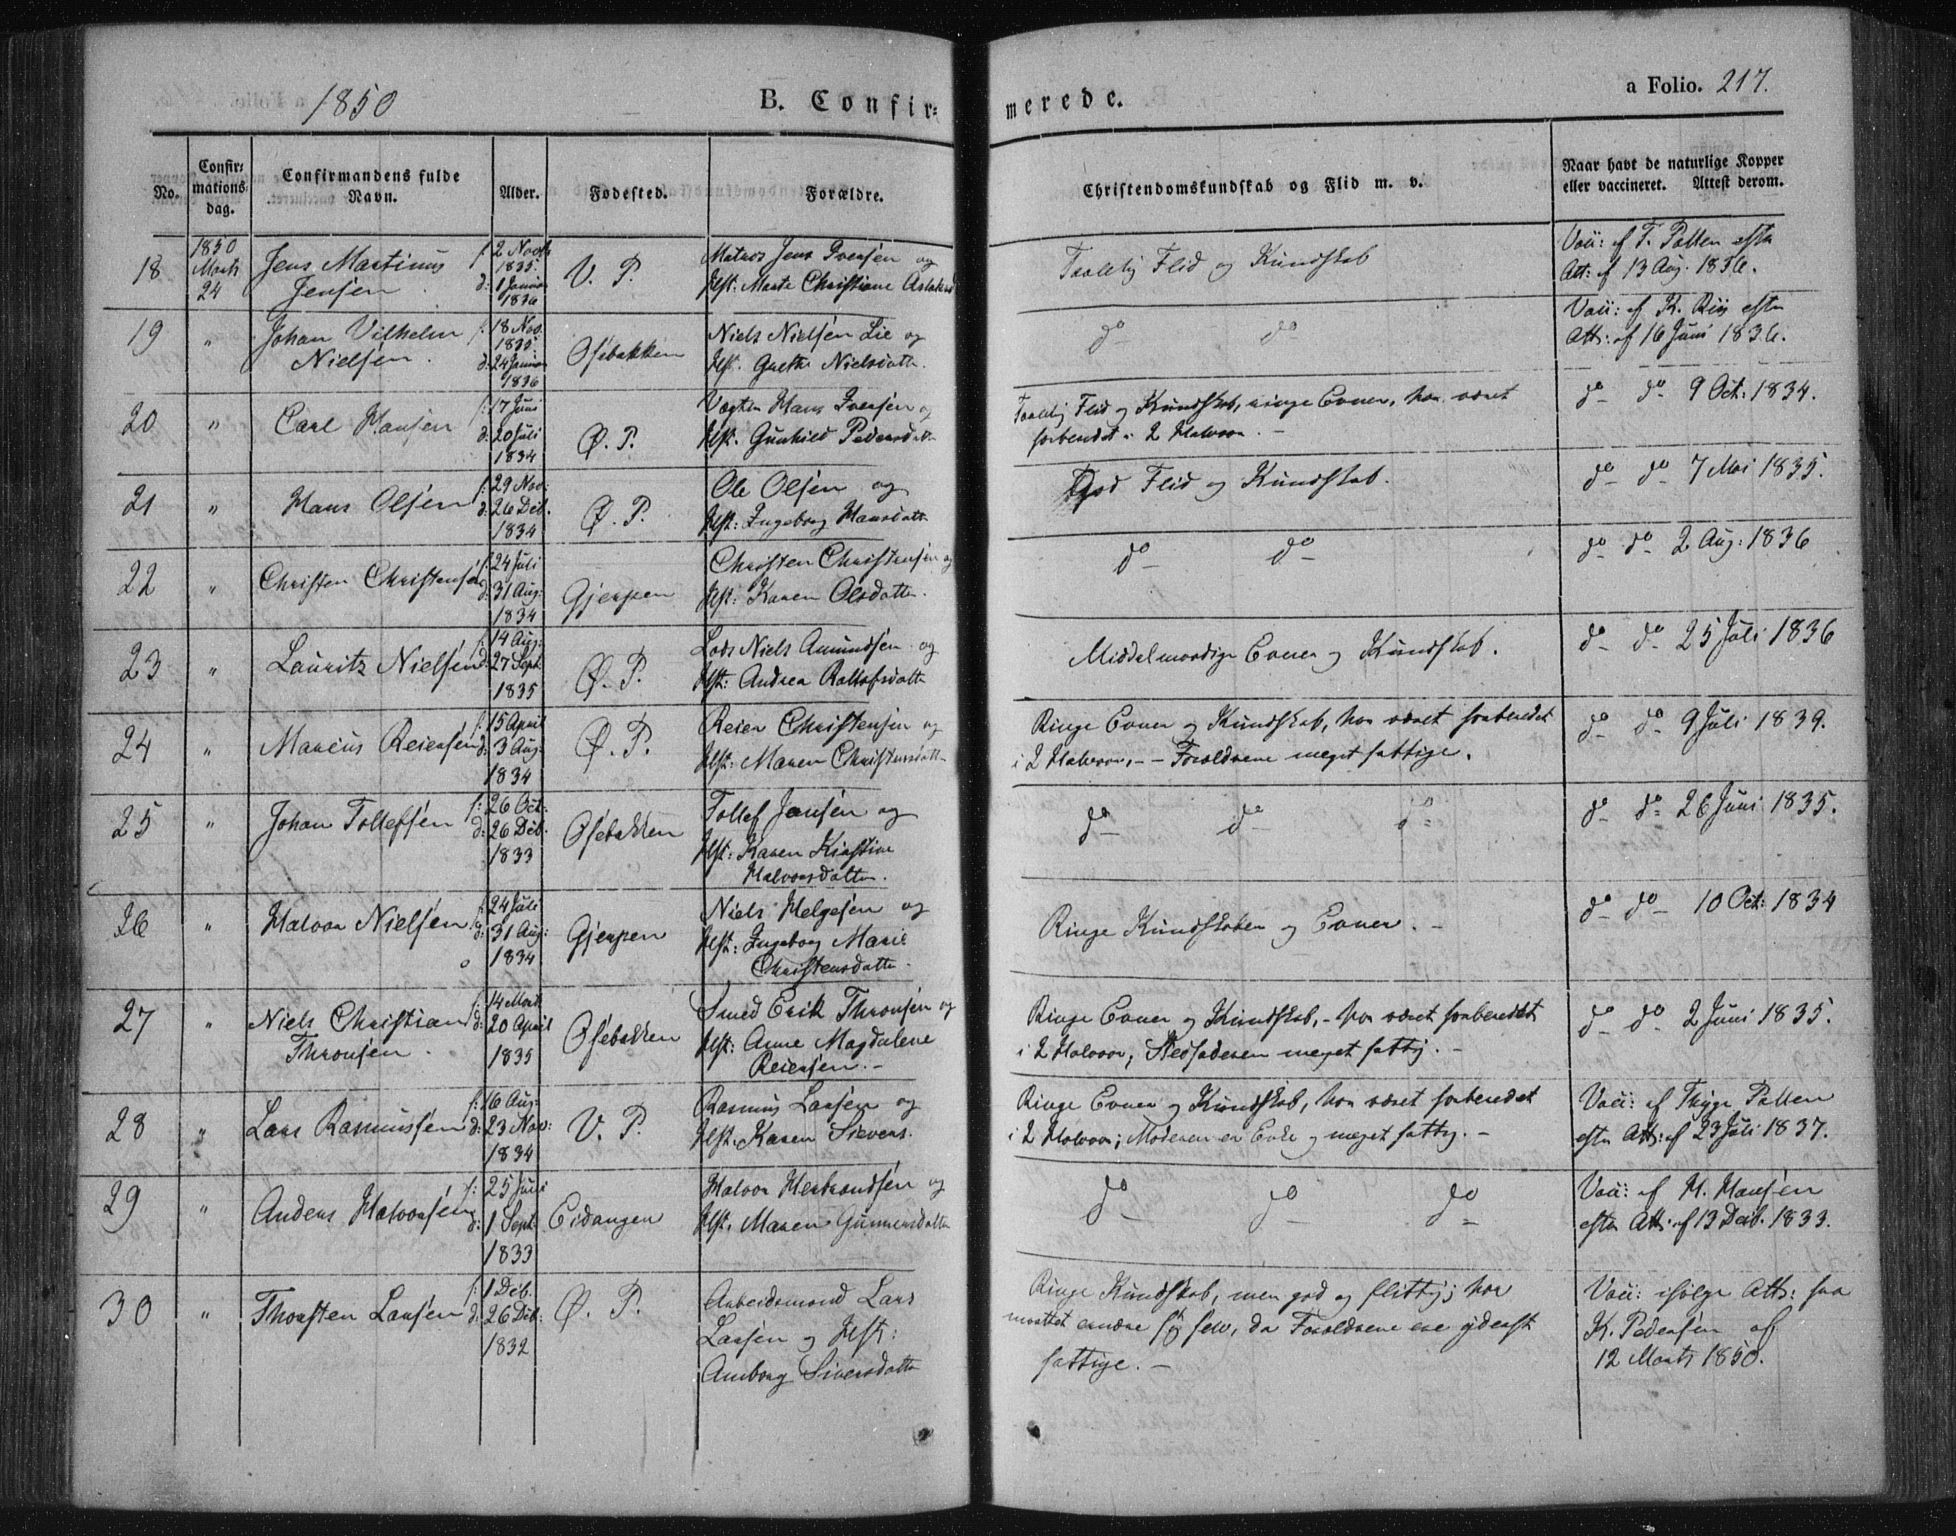 1850
B. Confirmerede.
a Folio. 217.
No.
Confir-
mations-
dag.
Confirmandens fulde
Navn.
Alder.
Fødested.
Forældre.
Christendomskundskab og Flid m. v.
Naar havt de naturlige Kopper
eller vaccineret. Attest derom.
18
1850
Marts
24
Jens Martinus
Jensen
f: 2 Novb
1835.
d: 1 Januar
1836
V. P.
Matros Jens Iversen og
Hst: Marte Christiane
Taalelig Flid og Kundskab
Vac: af T. Patten efter
Att: af 13 Aug. 1836.
19
"
Johan Vilhelm
Nielsen.
f: 18 Nov.
1835
d: 24 Januar
1836
Osebakken
Niels Nielsen Lie og
Hst. Grethe Nielsdatt.
do do
Vac: af K. Riis efter
Att: af 16 Juni 1836.
20
"
Carl Hansen
f: 17 Juni
d: 20 Juli
1834
Ø. P.
Vægter Hans Iversen og
Hst. Gunhild Pedersdatt
Taalelig Flid og Kundskab, ringe Evner, har været
forberedet i 2 Halvaar. -
do do 9 Oct: 1834.
21
"
Hans Olsen
f: 29 Nov:
d: 26 Deb.
1834
Ø. P.
Ole Olsen og
Hst: Ingeborg Hansdatt
God Flid og Kundskab.
do do 7 Mai 1835.
22
"
Christen Christensen
f: 24 Juli
d: 31 Aug:
1834
Gjerpen
Christen Christensen og
Hst: Karen Olsdatter.
do do
do do 2 Aug: 1836
23
"
Lauritz Nielsen
f: 14 Aug:
d: 27 Sept.
1835
Ø. P.
Lods Niels Amundsen og
Hst: Andrea Rollofsdatt
Middelmaadige Evner og Kundskab.
do do 25 Juli 1836
24
"
Marcus Reiersen
f: 15 April
d: 3 Aug:
1834
Ø. P.
Reier Christensen og
Hst: Maren Christensdatt
Ringe Evner og Kundskab, har været forberedet
i 2 Halvaar. - - Forældrene meget fattige.
do do 9 Juli 1839.
25
"
Johan Tollefsen
f: 26 Oct:
d: 26 Deb.
1833
Osebakken
Tollef Jansen og
Hst: Karen Kirstine
Halvorsdatter.
do do do
do do 26 Juni 1835.
26
"
Halvor Nielsen
f: 24 Juli
d: 31 Aug:
1834
Gjerpen
Niels Helgesen og
Hst: Ingeborg Marie
Christensdatter.
Ringe Kundskaber og Evner. -
do do 10 Oct: 1834
27
"
Niels Christian
Thronsen.
f: 14 Marts
d: 20 April
1835
Osebakken
Smed Erik Thronsen og
Hst: Anne Magdalene
Reiersen. -
Ringe Evner og Kundskab, - har været forberedet
i 2 Halvaar, Stedfaderen meget fattig. -
do do 2 Juni 1835.
28
"
Lars Rasmussen
f: 16 Aug:
d: 23 Nov:
1834
V. P.
Rasmus Larsen og
Hst: Karen Sievers.
Ringe Evner og Kundskab, har været forberedet
i 2 Halvaar; Moderen er Enke og meget fattig. -
Vac: af Thyge Patten
efter Att: af 23 Juli 1837.
29
"
Anders Halvorsen
f: 25 Juni
d: 1 Sept:
1833
Eidanger
Halvor Herbrandsen og
Hst. Maren Gunnersdatter
do do do
Vac: af H. Hansen
efter Att: af 13 Decb. 1833.
30
"
Thorsten Larsen
f: 1 Deb.
d: 26 Deb:
1832
Ø. P.
Arbeidsmand Lars
Larsen og Hst:
Amborg Siversdatter
Ringe Kundskab, men god og flittig; har
maattet ernære sig selv, da Forældrene ere yderst
fattige. -
Vac: ifølge Att: fra
K. Pedersen af
12 Marts 1850.